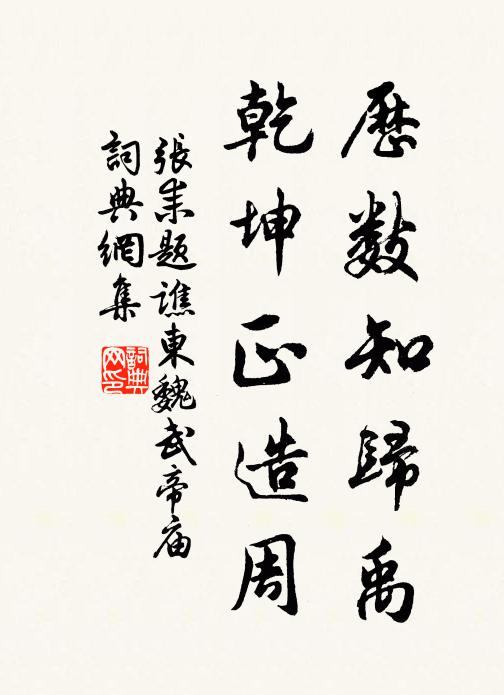 歷數知歸禹
乾坤正造周
張耒題譙東魏武帝庙
詞典網集
詞典网印